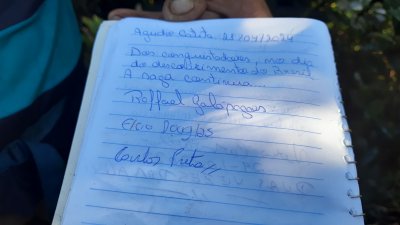 Agudo Cotita 21/04/2024
Dos conquistadores, no dia
do descobrimento do Brasil
A saga continua...
Raffael Galápagos
Elcio Douglas
Carlos Preto